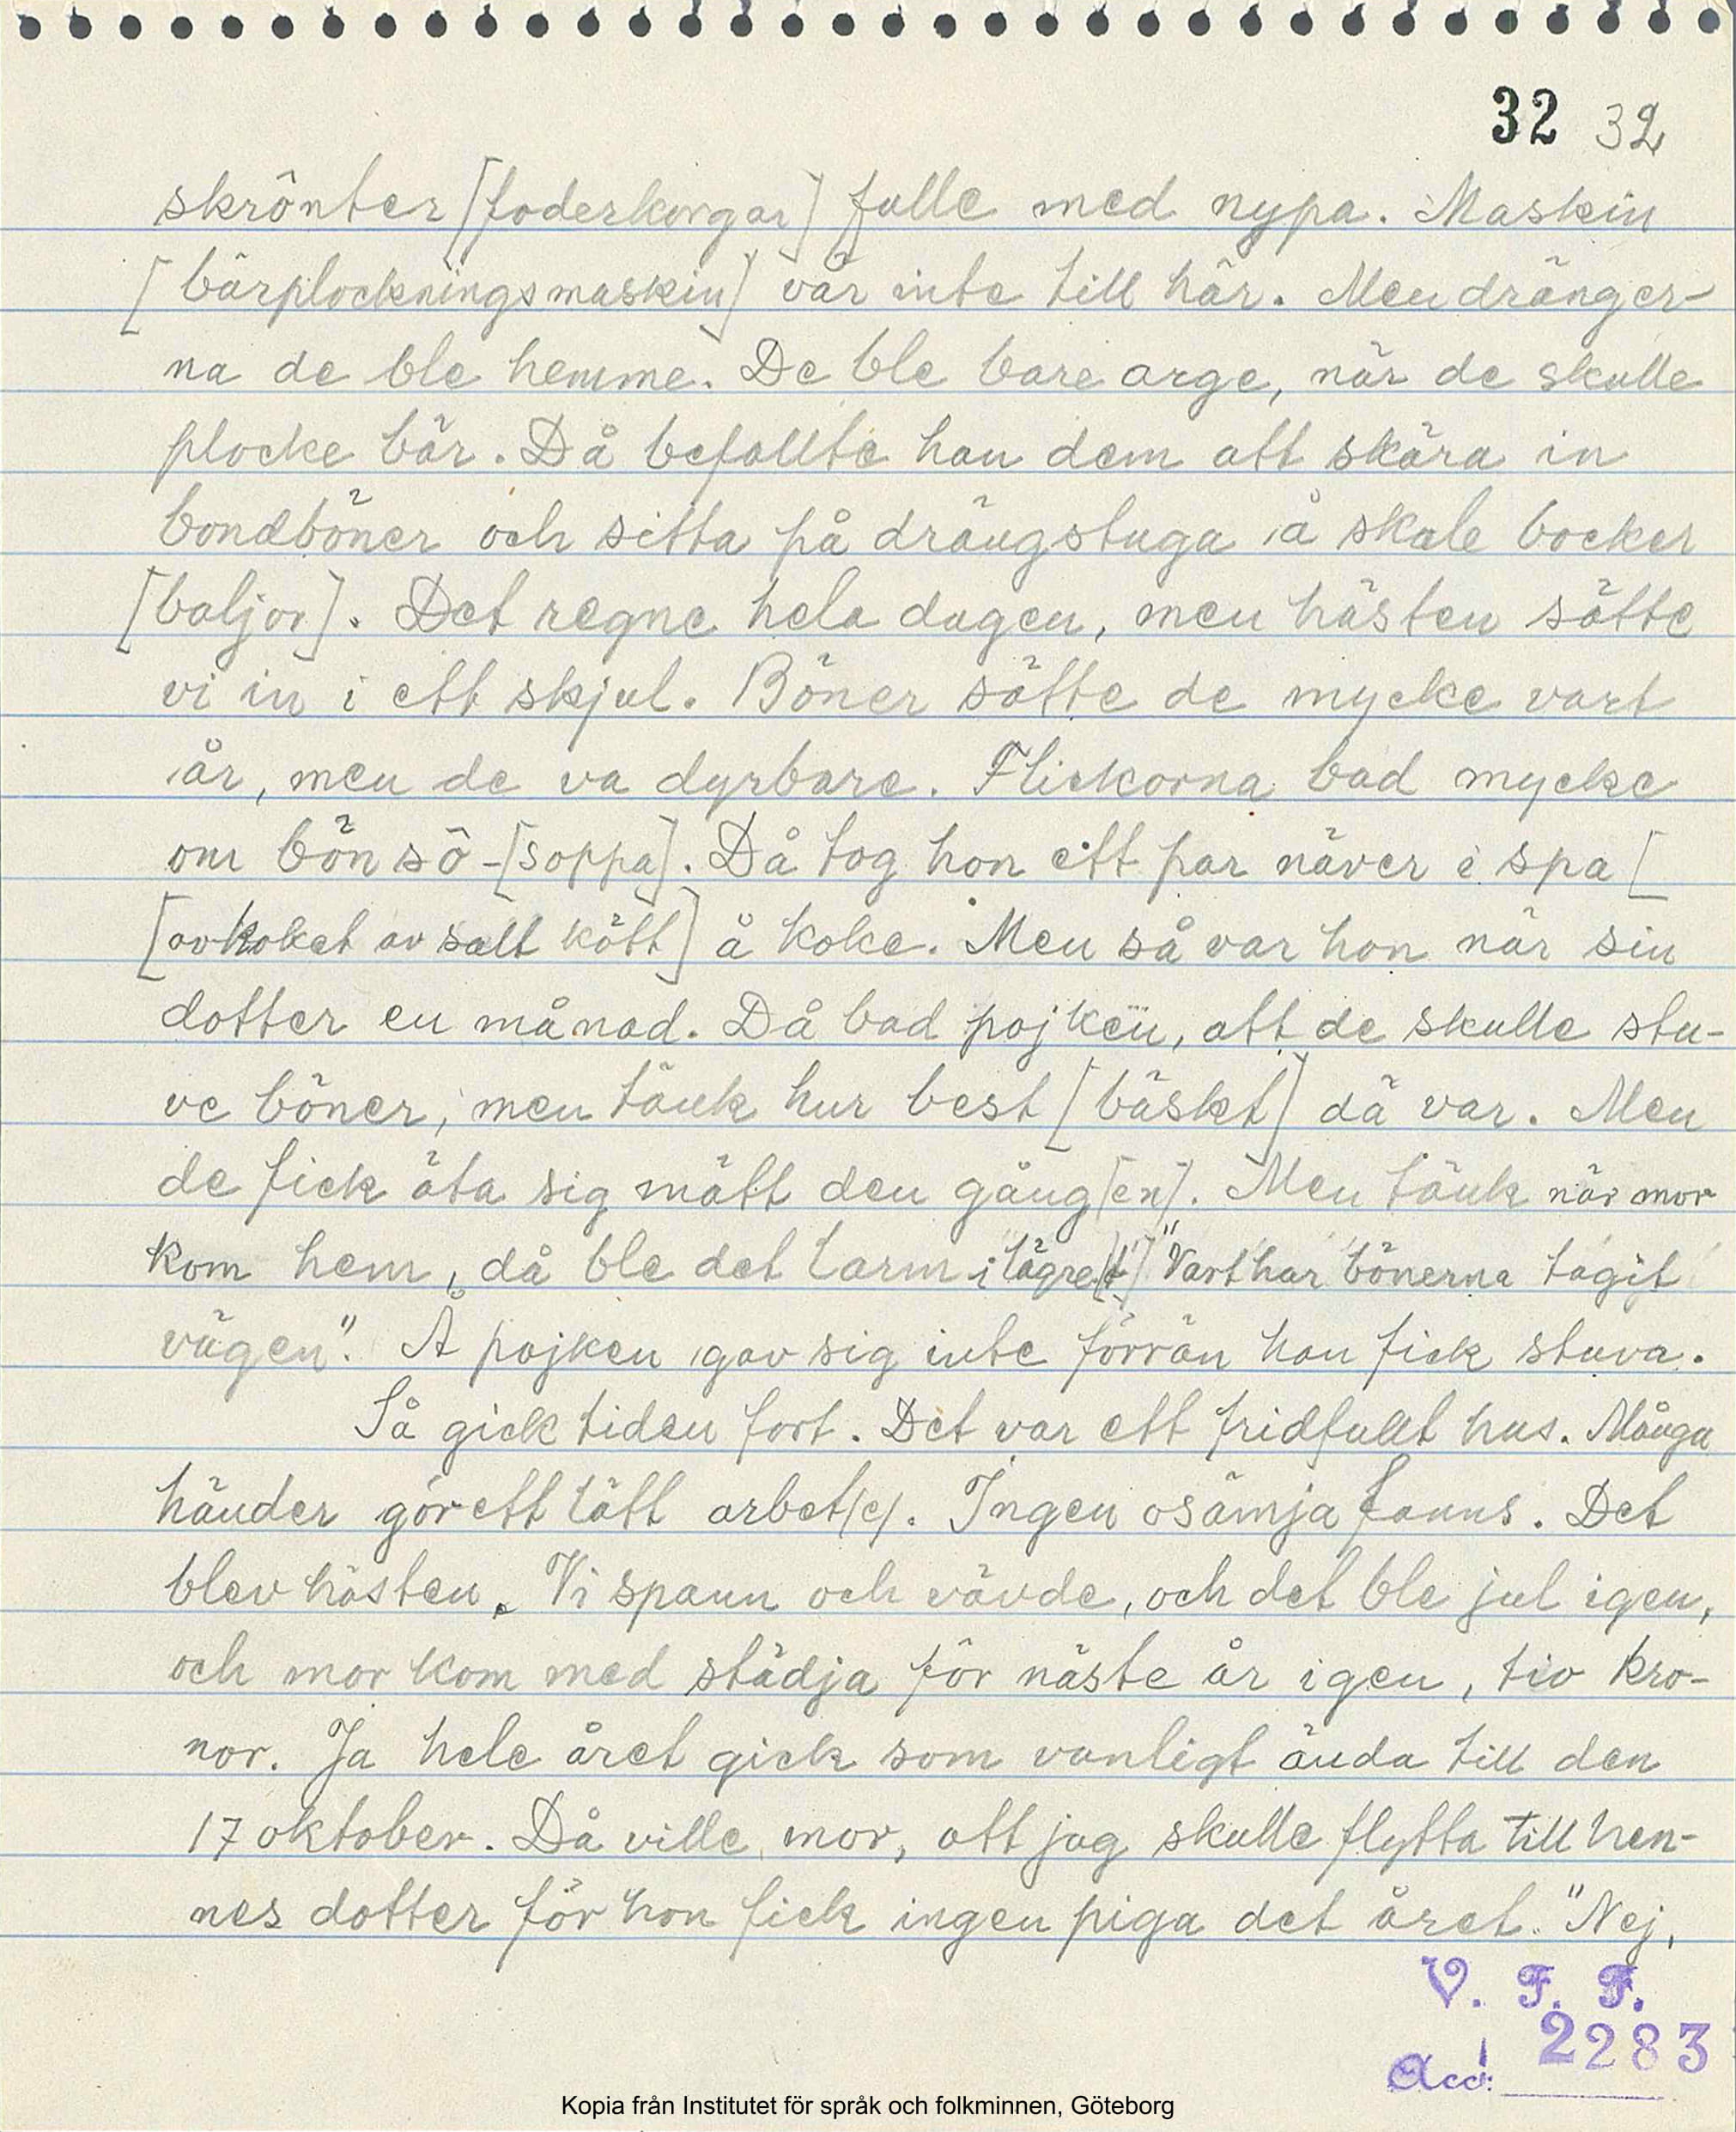 32 32
skrönter [foderkorgar] fulle med nypa. Maskin
[bärplockningsmaskin] var inte till här. Men dränger-
na de ble hemme. De ble bare arge, när de skulle
plocke bär. Då befallte han dem att skära in
bondböner och sitta på drängstuga å skale bocker
[baljor]. Det regne hela dagen, men hästen sätte
vi in i ett skjul. Böner sätte de mycke vart
år, men de va dyrbare. Flickorna bad mycke
om bönsö-[soppa]. Då tog hon ett par näver i spa [
[avkoket av salt kött] å koke. Men så var hon när sin
dotter en månad. Då bad pojken, att de skulle stu-
ve böner, men tänk hur best [bäskt] dä var. Men
de fick äta sig mätt den gång[en]. Men tänk när mor
kom hem, då ble det larm i lägre[t] "Vart har bönerna tagit
vägen". Å pojken gav sig inte förrän han fick stuva.
Så gick tiden fort. Det var ett fridfullt hus. Många
händer gör ett lätt arbet[e]. Ingen osämja fanns. Det
blev hösten. Vi spann och vävde, och det ble jul igen,
och mor kom med städja för näste år igen, tio kro-
nor. Ja hele året gick som vanligt ända till den
17 oktober. Då ville mor, att jag skulle flytta till hen-
nes dotter för hon fick ingen piga det året. "Nej,
V. F. F.
Acc: 2283
Kopia från Institutet för språk och folkminnen, Göteborg